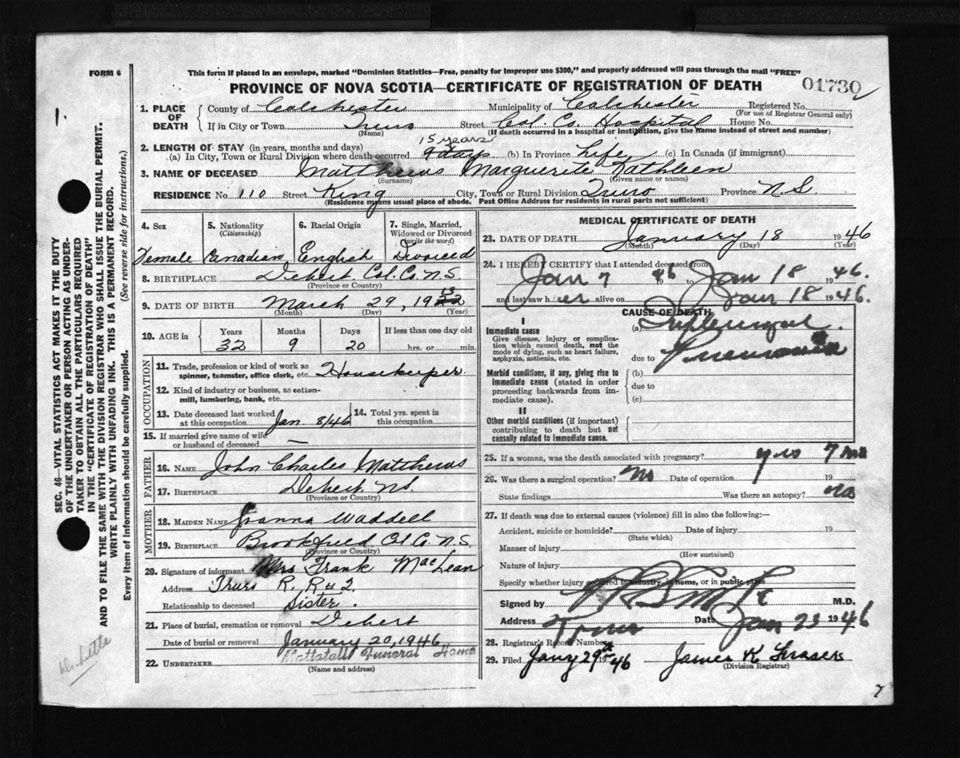 FORM 6
This form if placed in an envelope, marked "Dominion Statistics—Free, penalty for improper use $300," and properly addressed will pass through the mail "FREE"
PROVINCE OF NOVA SCOTIA—CERTIFICATE OF REGISTRATION OF DEATH
01730
1. PLACE OF DEATH County of Colchester Municipality of Colchester Registered No.
(For use of Registrar General only)
If in City or Town Truro Street Col. Co. Hospital House No.
(Name) (If death occurred in a hospital or institution, give the name instead of street and number)
2. LENGTH OF STAY (in years, months and days) 15 years
(a) In City, Town or Rural Division where death occurred 9 days (b) In Province Life (c) In Canada (if immigrant)
3. NAME OF DECEASED Matthews Marguerite Kathleen
(Surname) (Given name or names)
RESIDENCE No. 110 Street King City, Town or Rural Division Truro Province N.S.
(Residence means usual place of abode. Post Office Address for residents in rural parts not sufficient)
4. Sex 5. Nationality (Citizenship) 6. Racial Origin 7. Single, Married, Widowed or Divorced (write the word)
Female Canadian English Divorced
8. BIRTHPLACE Debert Col. Co. N.S.
(Province or Country)
9. DATE OF BIRTH March 29, 19
(Month) (Day) (Year)
10. AGE in Years Months Days If less than one day old
32 9 20 hrs. or min.
OCCUPATION
11. Trade, profession or kind of work as spinner, teamster, office clerk, etc. Housekeeper
12. Kind of industry or business, as cotton-mill, lumbering, bank, etc.
13. Date deceased last worked at this occupation Jan 8/46 14. Total yrs. spent in this occupation
15. If married give name of wife or husband of deceased —
FATHER
16. Name John Charles Matthews
17. Birthplace Debert N.S.
(Province or Country)
MOTHER
18. Maiden Name Waddell
19. Birthplace Brookfield Col. Co. N.S.
(Province or Country)
20. Signature of informant Mrs Frank MacLean
Address Truro R. R # 2
Relationship to deceased Sister.
21. Place of burial, cremation or removal Debert
Date of burial or removal January 20, 1946
22. UNDERTAKER Mattatall Funeral Home
(Name and address)
MEDICAL CERTIFICATE OF DEATH
23. DATE OF DEATH January 18 1946
(Month) (Day) (Year)
24. I HEREBY CERTIFY that I attended deceased from
Jan 7 46 to Jan 18 1946.
and last saw her alive on Jan 18 1946.
CAUSE OF DEATH
I
Immediate cause (a)
Give disease, injury or complication which caused death, not the mode of dying, such as heart failure, asphyxia, asthenia, etc.
due to Pneumonia
Morbid conditions, if any, giving rise to immediate cause (stated in order proceeding backwards from immediate cause).
(b)
due to
(c)
II
Other morbid conditions (if important) contributing to death but not causally related to immediate cause.
25. If a woman, was the death associated with pregnancy? yes 7 mo
26. Was there a surgical operation? No Date of operation 19
State findings Was there an autopsy? No
27. If death was due to external causes (violence) fill in also the following:—
Accident, suicide or homicide? Date of injury 19
(State which)
Manner of injury
(How sustained)
Nature of injury
Specify whether injury occurred in industry, in home, or in public place
Signed by M.D.
Address Truro Date Jan 23 1946
28. Registrar's Record Number
29. Filed Jany 29th 46 James K Fraser
(Division Registrar)
SEC. 46—VITAL STATISTICS ACT MAKES IT THE DUTY
OF THE UNDERTAKER OR PERSON ACTING AS UNDER-
TAKER TO OBTAIN ALL THE PARTICULARS REQUIRED
IN THE "CERTIFICATE OF REGISTRATION OF DEATH"
AND TO FILE THE SAME WITH THE DIVISION REGISTRAR WHO SHALL ISSUE THE BURIAL PERMIT.
WRITE PLAINLY WITH UNFADING INK. THIS IS A PERMANENT RECORD.
Every item of information should be carefully supplied. (See reverse side for instructions.)
7